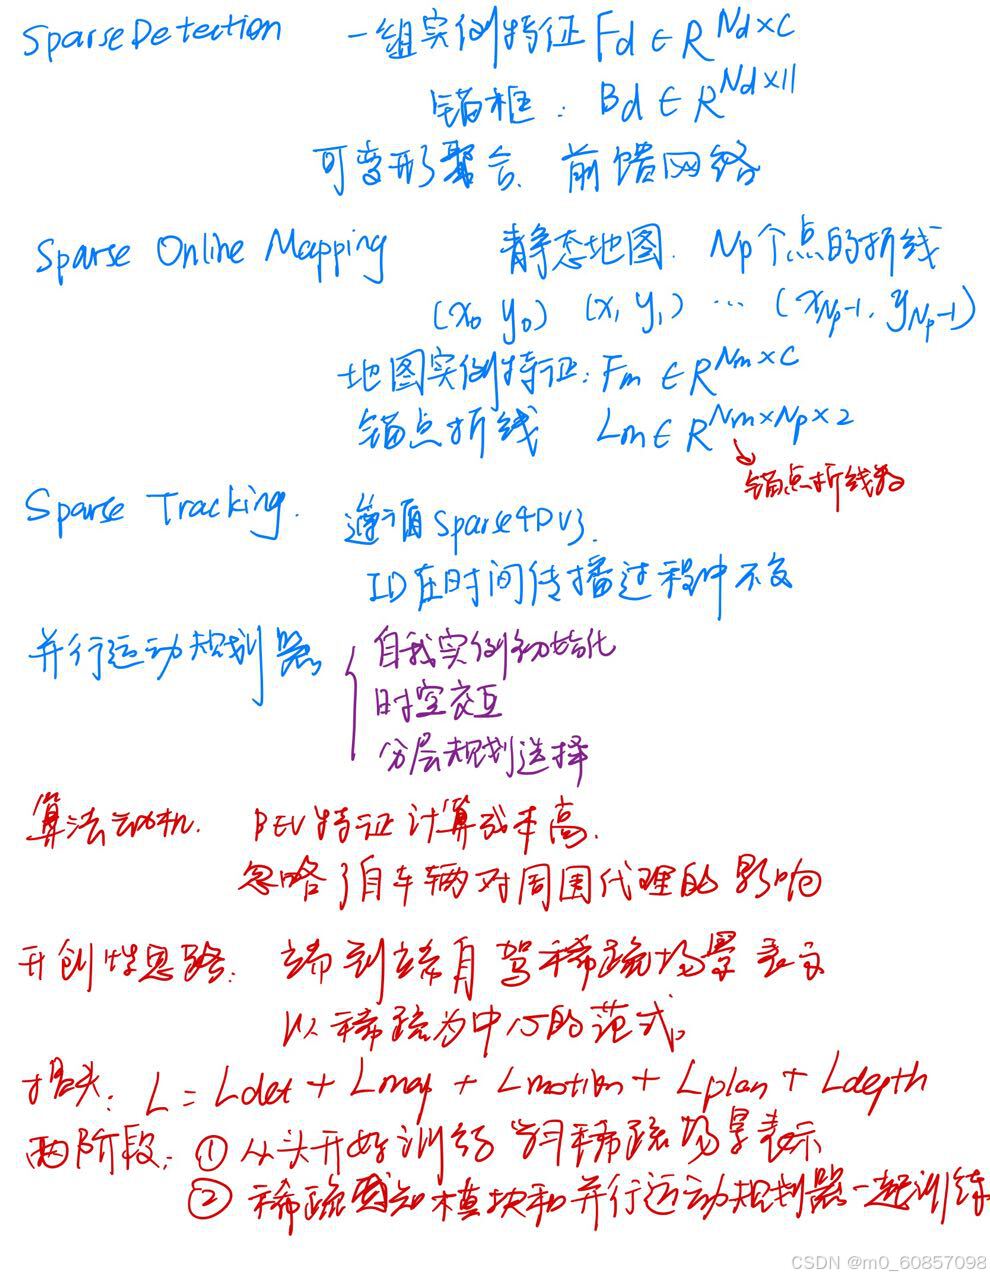 Sparse Detection 一组实例特征 Fd ∈ R^{Nd×C}
锚框: Bd ∈ R^{Nd×11}
可变形聚合、前馈网络
Sparse Online Mapping 静态地图. Np个点的折线
(x₀ y₀) (x₁ y₁) … (x_{Np-1}, y_{Np-1})
地图实例特征: Fm ∈ R^{Nm×C}
锚点折线 Lm ∈ R^{Nm×Np×2}
锚点折线数
Sparse Tracking. 遵循 Sparse4DV3.
ID在时间传播过程中不变
并行运动规划器
自我实例初始化
时空交互
分层规划选择
算法动机. BEV特征计算成本高.
忽略了自车辆对周围代理的影响
开创性思路: 端到端自驾稀疏场景表示
以稀疏为中心的范式。
损失: L = Ldet + Lmap + Lmotion + Lplan + Ldepth
两阶段: ① 从头开始训练 学习稀疏场景表示
② 稀疏感知模块和并行运动规划器一起训练
CSDN @m0_60857098